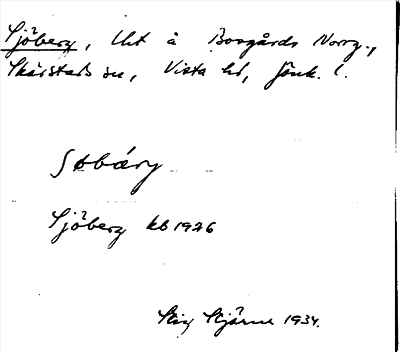 Sjöberg, lht å Boogårds Norrg.,
Skärstads sn, Vista hd, Jönk. l.
Sjöberg kb 1926
Stig Stjärne 1934.